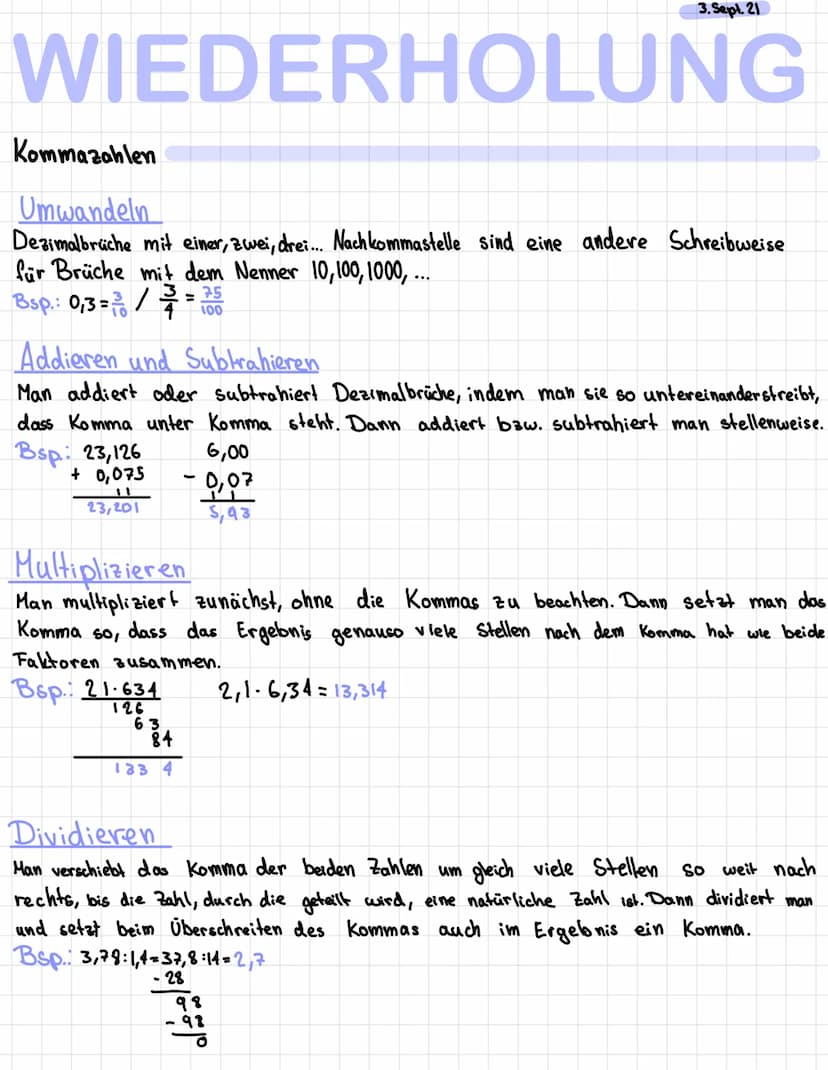 3. Sept. 21
WIEDERHOLUNG
Kommazahlen
Umwandeln
Dezimalbrüche mit einer, zwei, drei... Nachkommastelle sind eine andere Schreibweise
für Brüche mit dem Nenner 10, 100, 1000, ...
Bsp.: 0,3 = 3/10 / 3/4 = 75/100
Addieren und Subtrahieren
Man addiert oder subtrahiert Dezimalbrüche, indem man sie so untereinanderstreibt,
dass Komma unter Komma steht. Dann addiert bzw. subtrahiert man stellenweise.
Bsp.: 23,126 6,00
+ 0,075 - 0,07
11 11
23,201 5,93
Multiplizieren
Man multipliziert zunächst, ohne die Kommas zu beachten. Dann setzt man das
Komma so, dass das Ergebnis genauso viele Stellen nach dem Komma hat wie beide
Faktoren zusammen.
Bsp.: 21·634 2,1·6,34 = 13,314
126
63
84
133 4
Dividieren
Man verschiebt das Komma der beiden Zahlen um gleich viele Stellen so weit nach
rechts, bis die Zahl, durch die geteilt wird, eine natürliche Zahl ist. Dann dividiert man
und setzt beim Überschreiten des Kommas auch im Ergebnis ein Komma.
Bsp.: 3,78:1,4=37,8:14=2,7
- 28
98
- 98
0